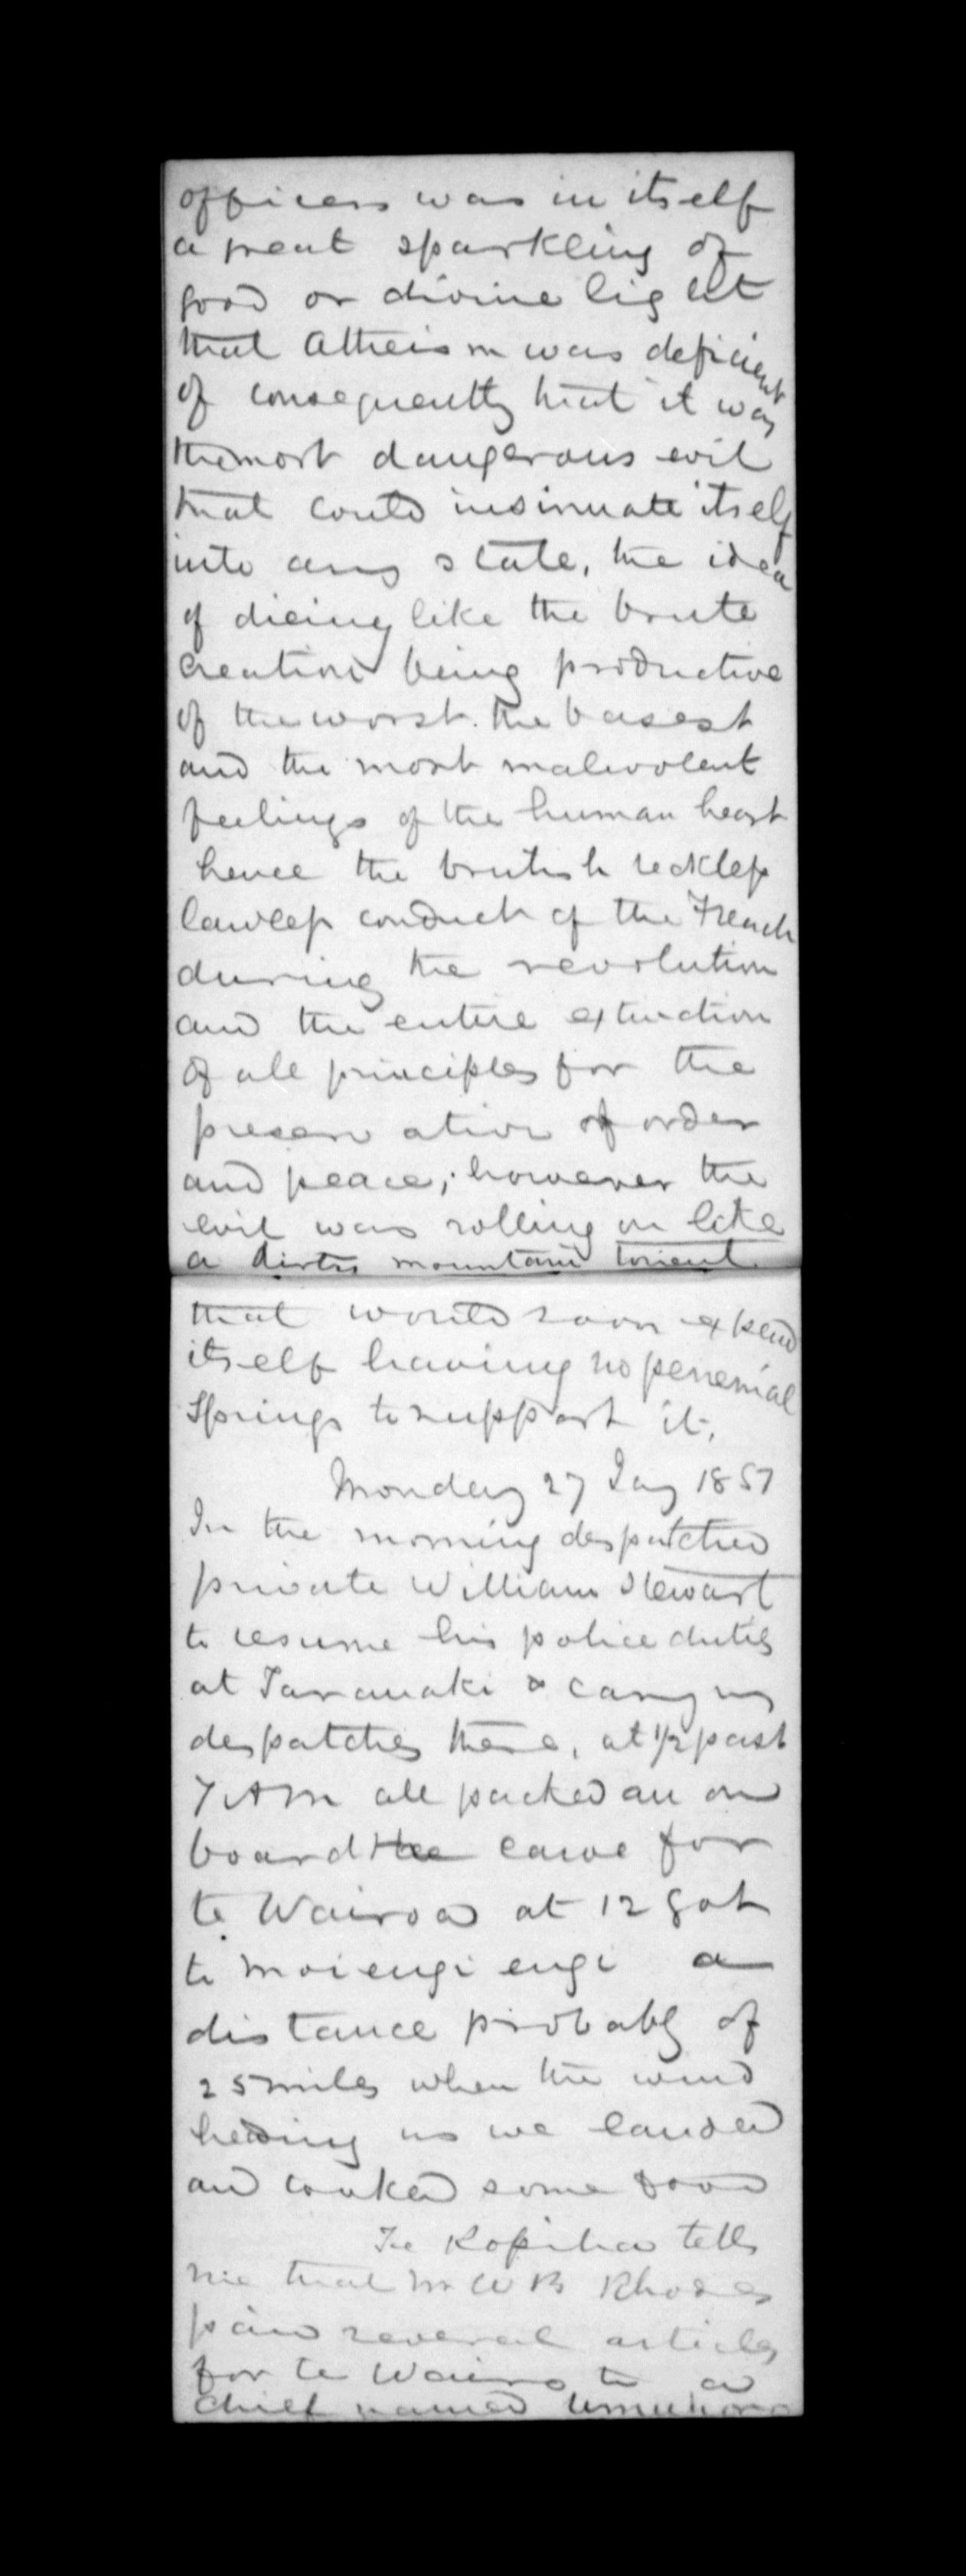 officers was in itself
a great sparkling of
good or divine light
that Atheism was deficient
of consequently that it was
the most dangerous evil
that could insinuate itself
into any state, the idea
of dieing like the brute
creation being productive
of the worst. the basest
and the most malevolent
feelings of the human heart
hence the brutish reckless
lawless conduct of the French
during the revolution
and the entire extinction
of all principles for the
preservation of order
and peace; however the
evil was rolling on like
a dirty mountain torient
that would soon expend
itself having no perenial
springs to support it.
Monday 27 Jay 1851
In the morning despatched
private William Stewart
to resume his police duties
at Taranaki & carry my
despatches there, at 1/2 past
7 AM all packed an on
board the canoe for
te Wairoa at 12 got
to moiengi engi a
distance probably of
25 miles when the wind
heading us we landed
and cooked some food
Te Kopiha tells
me that Mr W B Rhodes
paid several articles
for te Wairoa to a
chief named